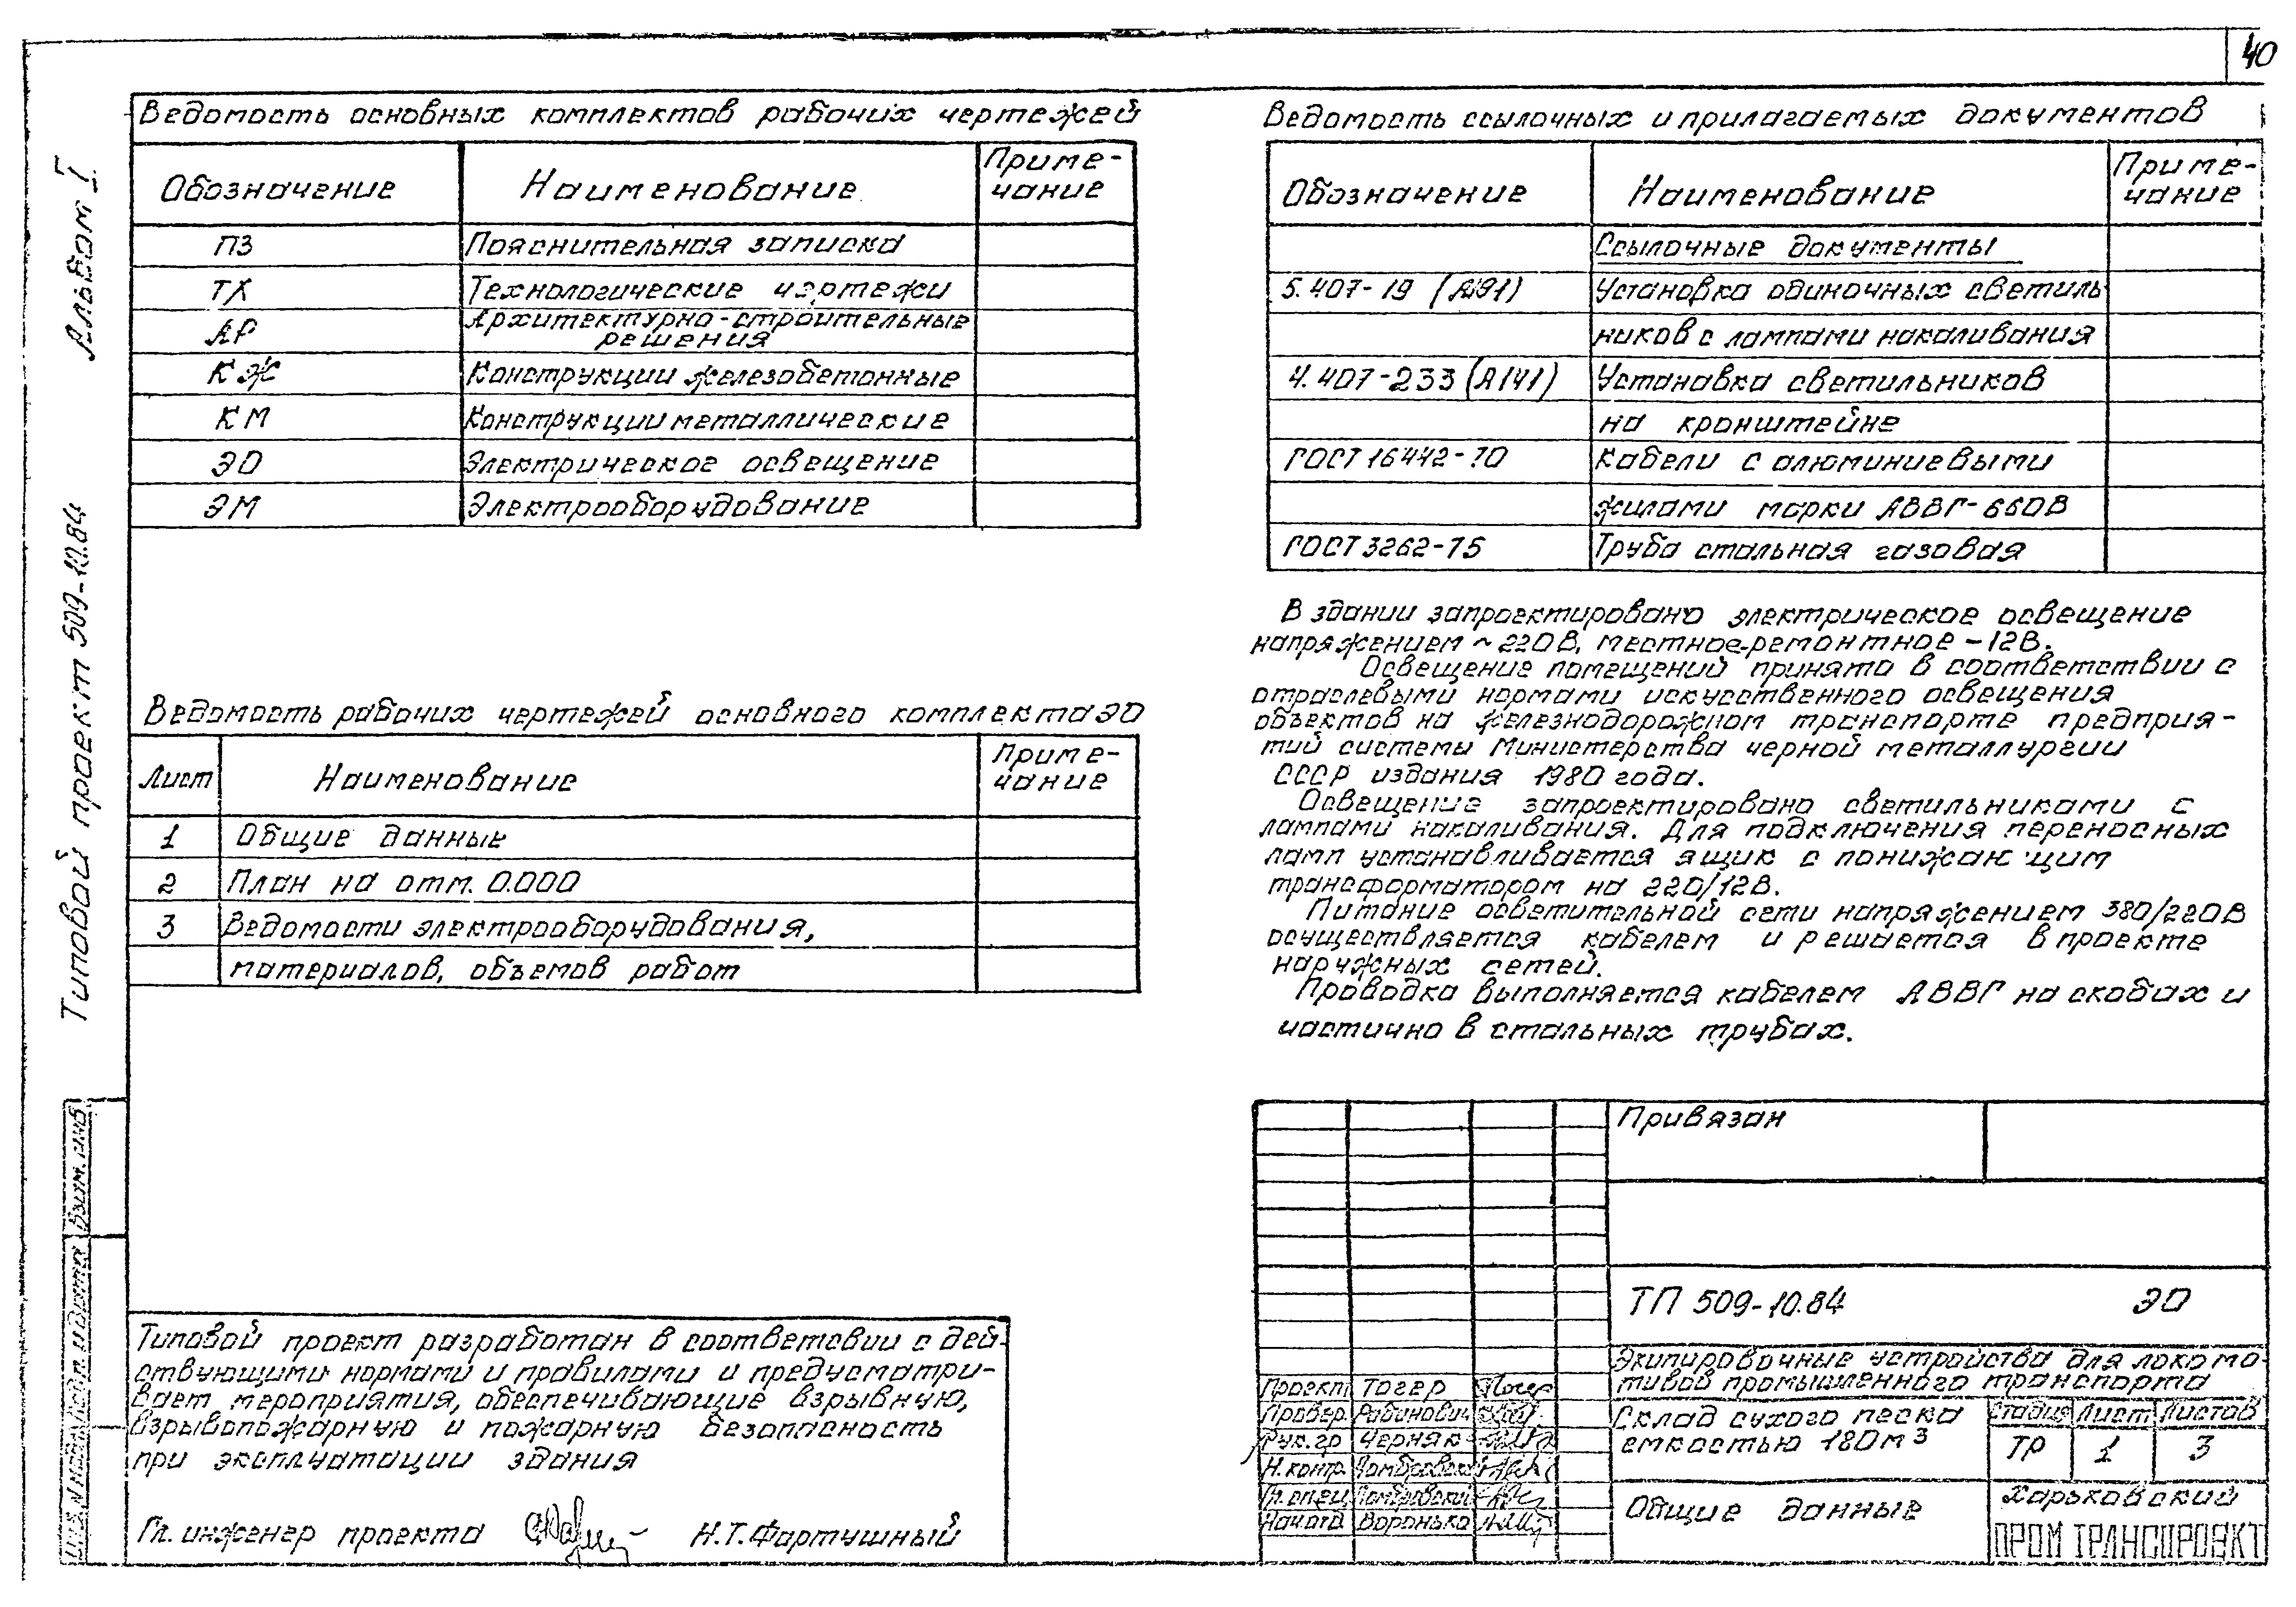 40
Альбом I
Типовой проект 509-10.84
Ведомость основных комплектов рабочих чертежей
Обозначение Наименование Приме-
чание
ПЗ Пояснительная записка
ТХ Технологические чертежи
АР Архитектурно-строительные
решения
КЖ Конструкции железобетонные
КМ Конструкции металлические
ЭО Электрическое освещение
ЭМ Электрооборудование
Ведомость рабочих чертежей основного комплекта ЭО
Лист Наименование Приме-
чание
1 Общие данные
2 План на отм. 0.000
3 Ведомости электрооборудования,
материалов, объемов работ
Типовой проект разработан в соответсвии с дей-
ствующими нормами и правилами и предусматри-
вает мероприятия, обеспечивающие взрывную,
взрывопожарную и пожарную безопасность
при эксплуатации здания
Гл. инженер проекта Н.Т. Фартушный
Ведомость ссылочных и прилагаемых документов
Обозначение Наименование Приме-
чание
Ссылочные документы
5.407-19 (А91) Установка одиночных светиль
ников с лампами накаливания
4.407-233 (А141) Установка светильников
на кронштейне
ГОСТ 16442-70 Кабели с алюминиевыми
жилами марки АВВГ-660В
ГОСТ 3262-75 Труба стальная газовая
В здании запроектировано электрическое освещение
напряжением ~220В, местное-ремонтное -12В.
Освещение помещений принято в соответствии с
отраслевыми нормами искусственного освещения
объектов на железнодорожном транспорте предприя-
тий системы Министерства черной металлургии
СССР издания 1980 года.
Освещение запроектировано светильниками с
лампами накаливания. Для подключения переносных
ламп устанавливается ящик с понижающим
трансформатором на 220/12В.
Питание осветительной сети напряжением 380/220В
осуществляется кабелем и решается в проекте
наружных сетей.
Проводка выполняется кабелем АВВГ на скобах и
частично в стальных трубах.
Привязан
ТП 509-10.84 ЭО
Экипировочные устройства для локомо-
тивов промышленного транспорта
Проект Тогер
Провер. Рабинович
Рук.гр Черняк
Н.контр. Домбровский
Гл.спец Домбровский
Начотд Воронько
Склад сухого песка
емкостью 180м³
Стадия Лист Листов
ТР 1 3
Общие данные
Харьковский
ПРОМТРАНСПРОЕКТ
Взам. инв
Подп. и дата
Инв. №